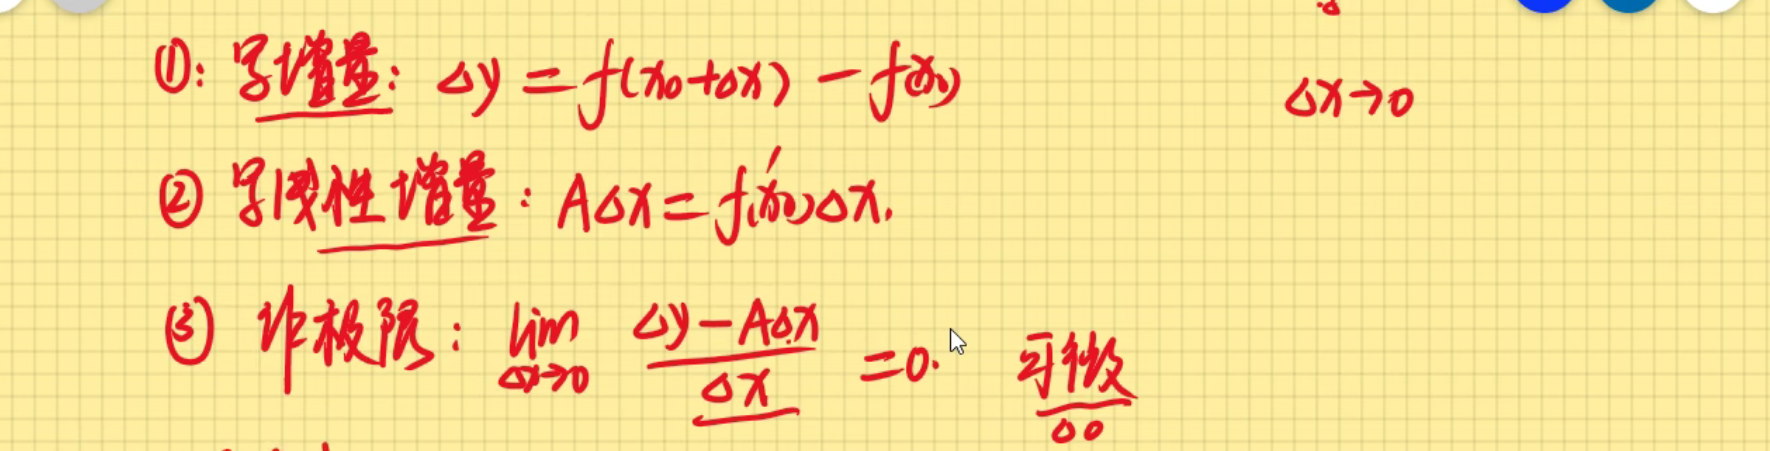 ①: 写增量: Δy = f(x₀+Δx) − f(x₀)
Δx→0
② 写线性增量: AΔx = f'(x₀)Δx.
③ 作极限: lim_{Δx→0} (Δy − AΔx)/Δx = 0. 可微